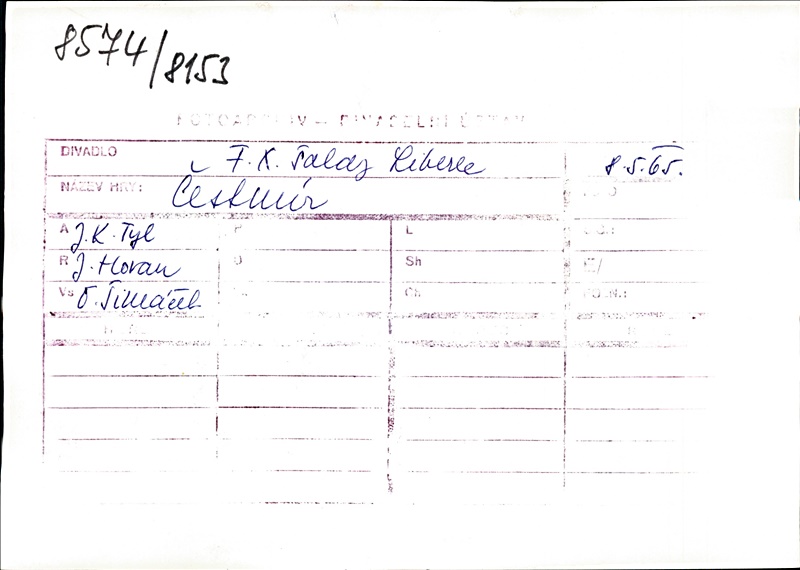 8574/8153
FOTOARCHIV – DIVADELNÍ ÚSTAV
DIVADLO F. X. Šalda Liberec 8.5.65.
NÁZEV HRY: Čestmír
A J.K. Tyl P L
R J. Horan D Sh
Vs O. Šimáček Ch